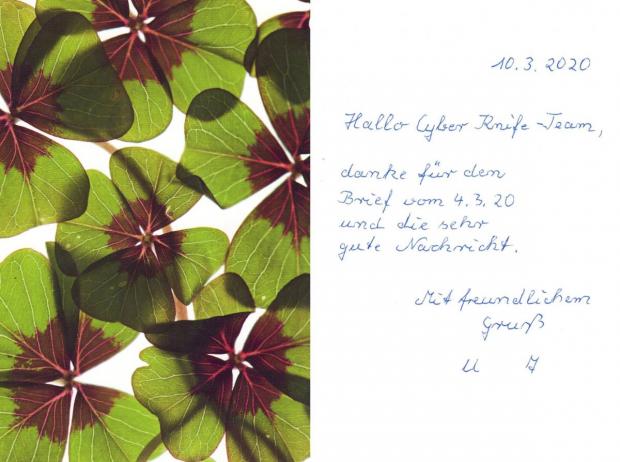 10.3.2020
Hallo Cyber Knife-Team,
danke für den
Brief vom 4.3.20
und die sehr
gute Nachricht.
Mit freundlichem
Gruß
U J